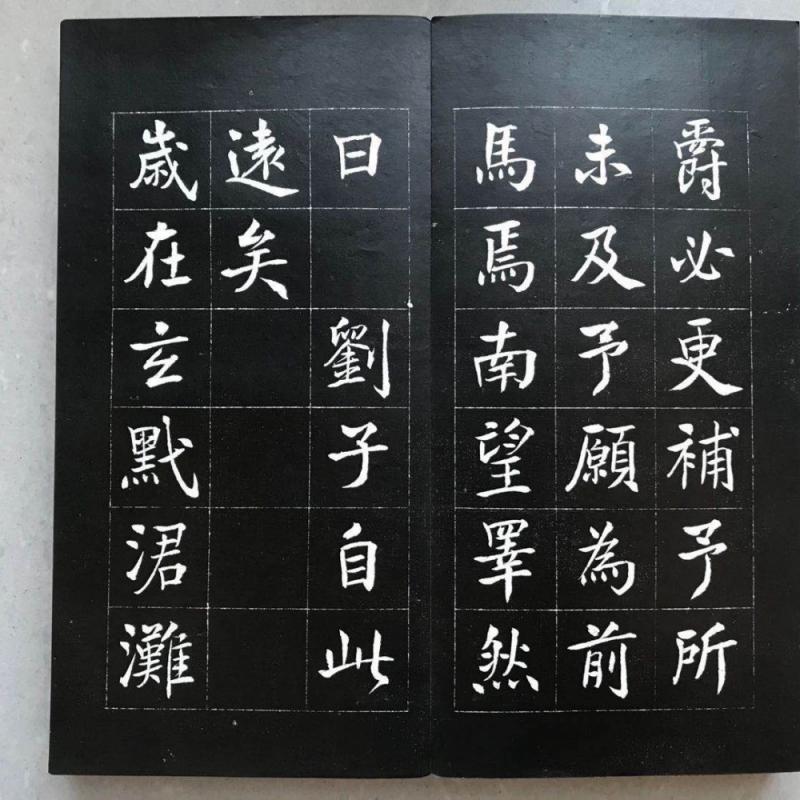 爵必更補予所
未及予願為前
馬焉南望睪然
曰劉子自此
遠矣
歲在玄黓涒灘